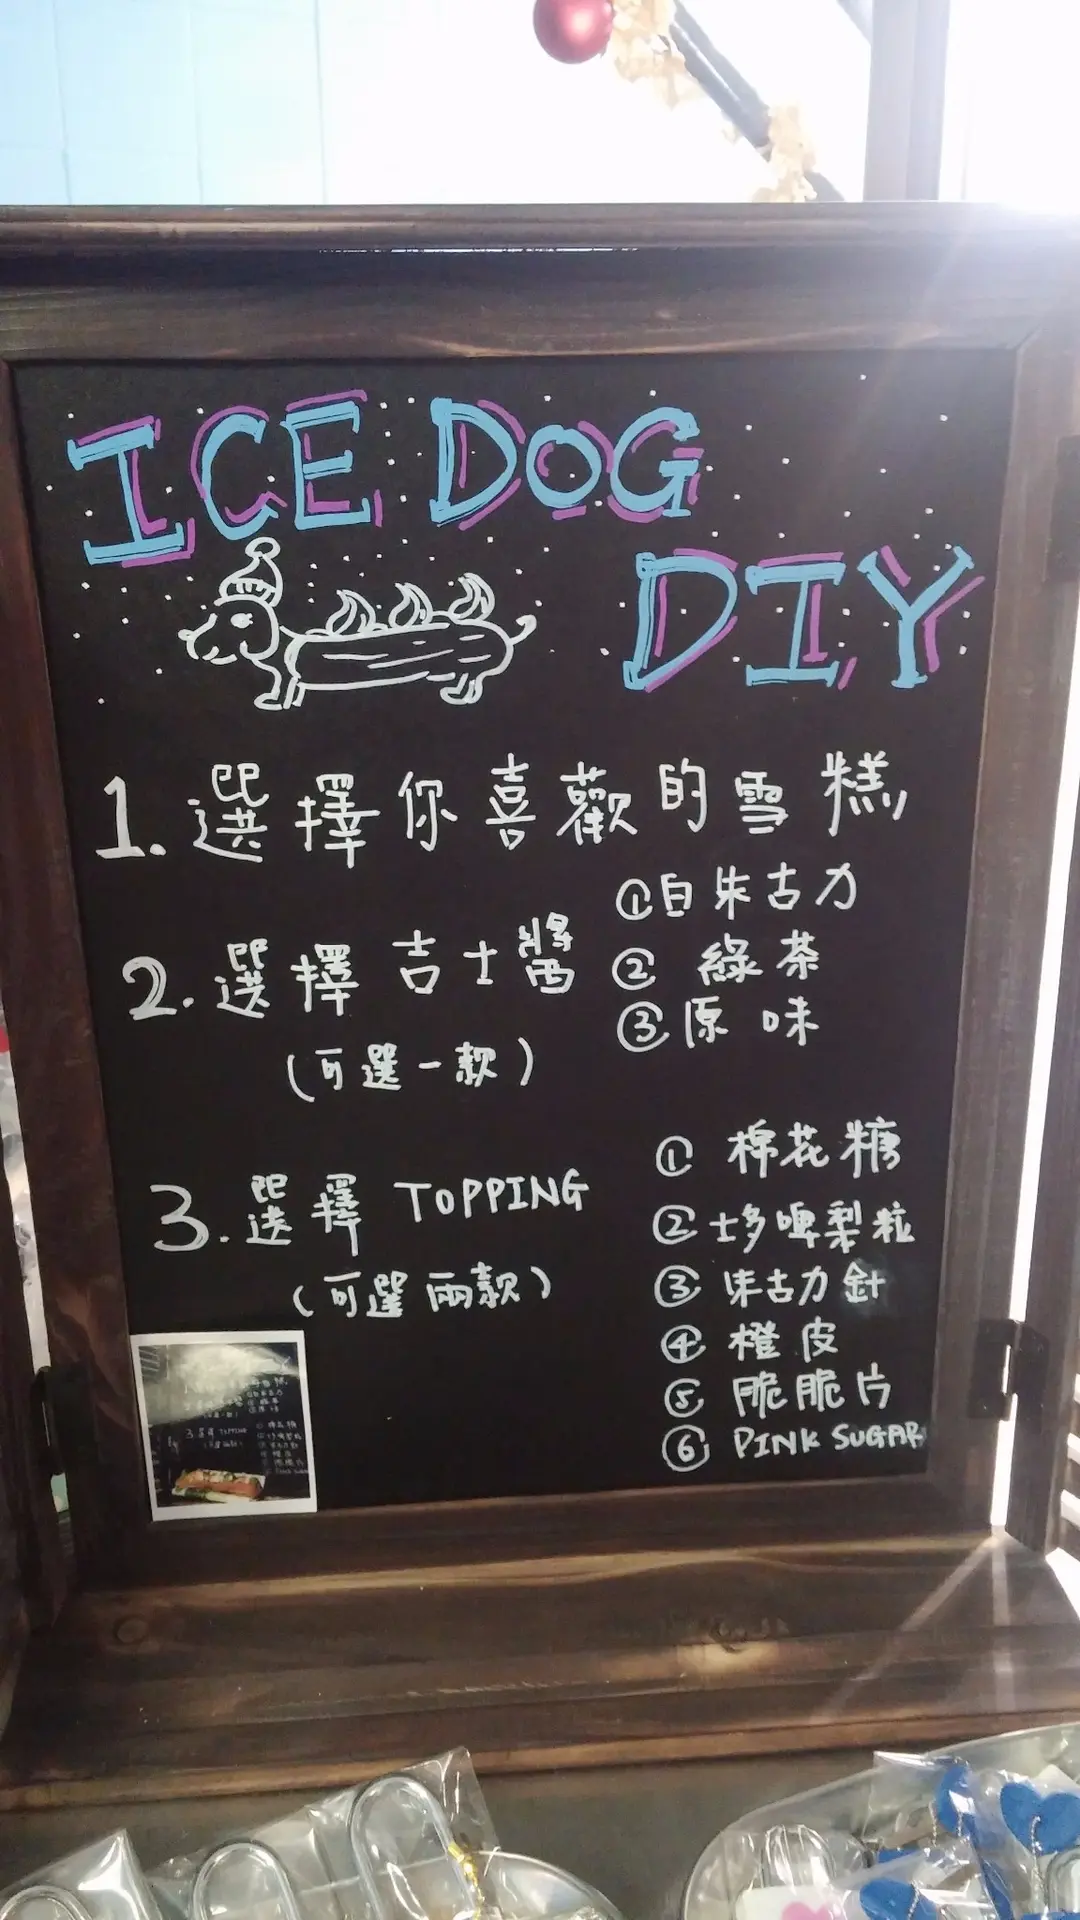 ICE DOG
DIY
1. 選擇你喜歡的雪糕
2. 選擇吉士醬
(可選一款)
①白朱古力
② 綠茶
③原味
3. 選擇 TOPPING
(可選兩款)
① 棉花糖
② 士多啤梨粒
③ 朱古力針
④ 橙皮
⑤ 脆脆片
⑥ PINK SUGAR